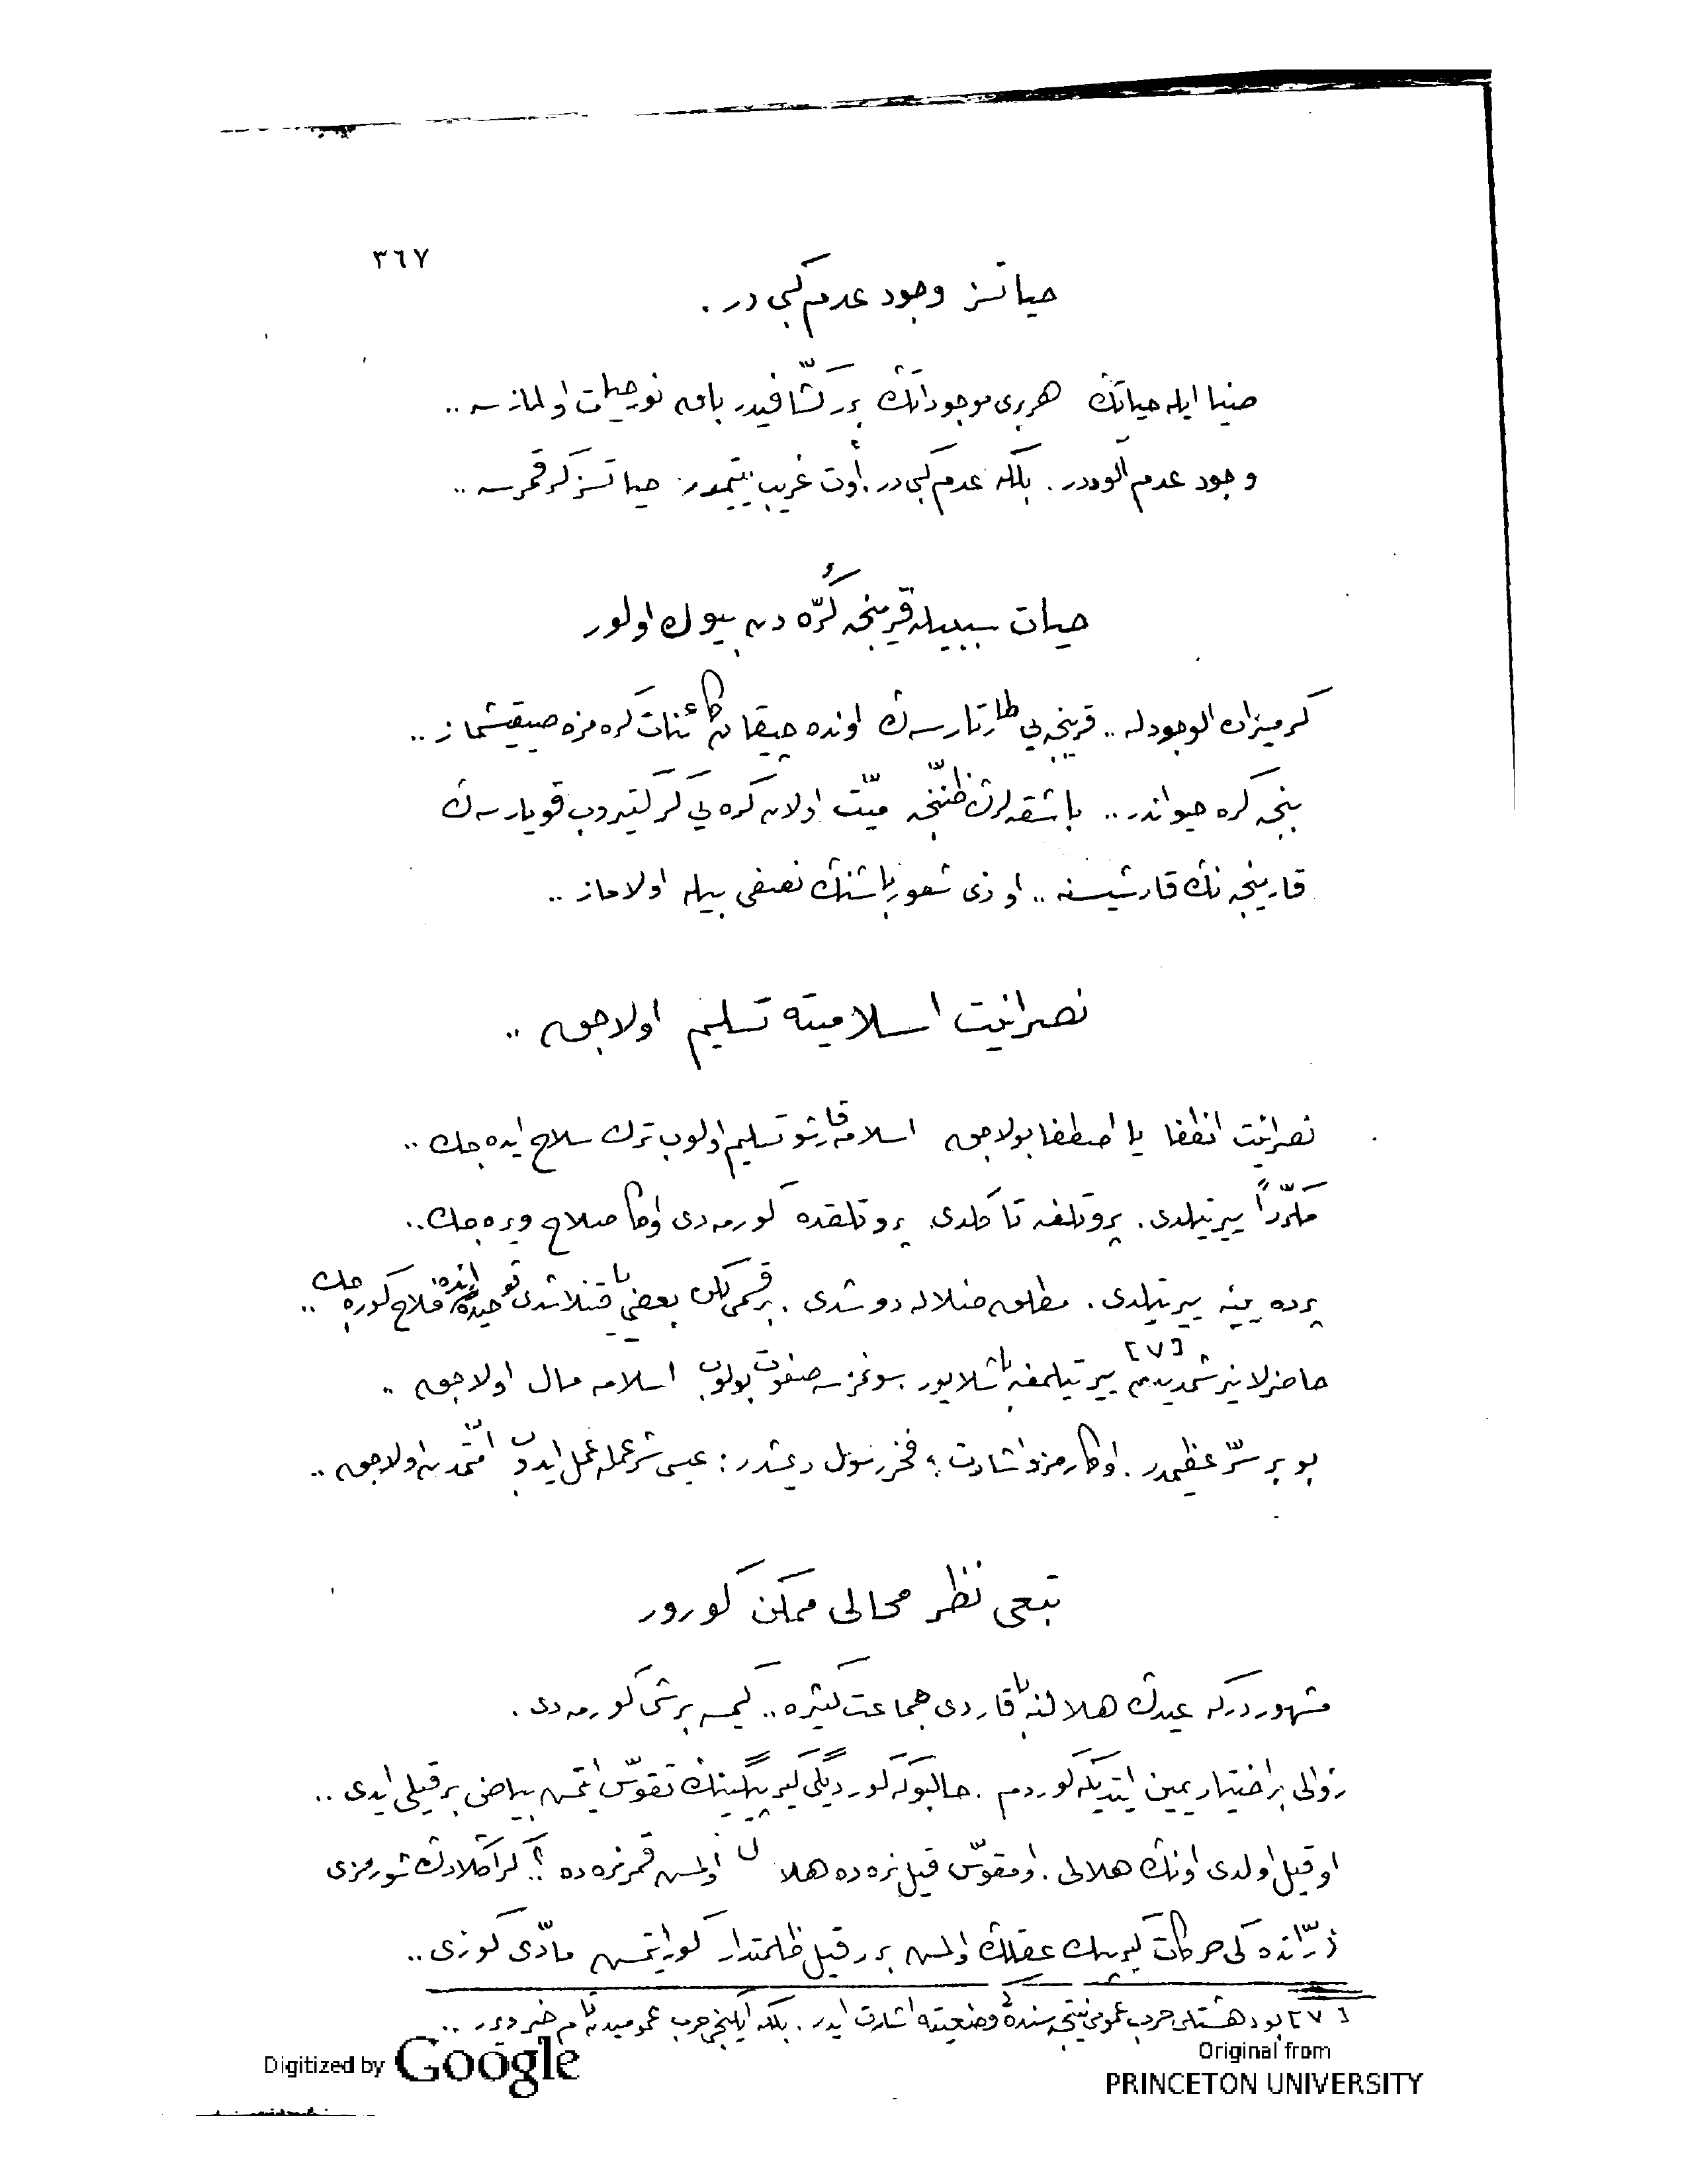 ٣٦٧
حياتسز وجود عدم كبى در .
ضيا ايله حياتڭ هر برى موجوداتڭ بر كشّافيدر باق نور حيات اولمازسه ..
وجود عدم آلوددر . بلكه عدم كبى در . أوت غريب يتيمدر حياتسز كر قمرسه ..
حيات سببيله قرينجه كُرّه دن بيوك اولور
كر ميزان الوجودله .. قرينجه يى طارتارسه ڭ اوندن چيقان كائنات كره مزه صيقيشماز ..
بنجه كره حيواندر .. باشقه لرڭ ظنّنجه ميّت اولان كره يى كر كتيروب قويارسه ڭ
قارينجه نڭ قارشيسنه .. او ذى شعور باشنڭ نصفى بيله اولاماز ..
نصرانيت اسلاميته تسليم اولاجق ..
نصرانيت انطفا يا اصطفا بولاجق اسلامه قارشو تسليم اولوب ترك سلاح ايده جك ..
مكرّراً ييرتيلدى . پروتلغه تا كلدى پروتلقده كورمه دى اوكا صلاح ويره جك ..
پرده ينه ييرتيلدى . مطلق ضلاله دوشدى . بر قسمى لكن بعضى ياقينلاشدى توحيده اونده فلاح كوره جك ..
حاضرلانير شمديدن [٧] ييرتيلمغه باشلايور . سونمزسه صفوت بولوب اسلامه مال اولاجق ..
بو بر سرّ عظيمدر . اوكا رمز و اشارت ؛ فخر رسول ديمشدر : عيسى شرعمله عمل ايدوب امّتمدن اولاجق ..
تبعى نظر محالى ممكن كورور
مشهوردركه عيدڭ هلالنه باقاردى جماعت كثيره .. كيمسه برشى كورمه دى .
زوالى بر اختيار يمين ايتديكه كوردم . حالبوكه كورديگى كيرپيگينڭ تقوّس ايتمش بياض بر قيلى ايدى ..
او قيل اولدى اونڭ هلالى . او مقوّس قيل نره ده هلال اولمش قمر نره ده ؟ .. كر آڭلادڭ شو رمزى
ذرّاتده كى حركات كيرپيك عقلڭ اولمش برر قيل ظلمتدار كور ايتمش مادّى كوزى ..
[٧] بو دهشتلى حرب عمومى نتيجه سنده كى وضعيته اشارت ايدر . بلكه ايكنجى حرب عموميدن تام خبر ويرر ..
Digitized by Google
Original from
PRINCETON UNIVERSITY